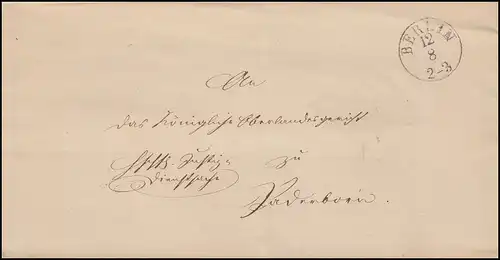 BERLIN
12
8
2-3
An
das Königliche Oberlandesgericht
Justiz-
Dienstsache
zu
Paderborn.